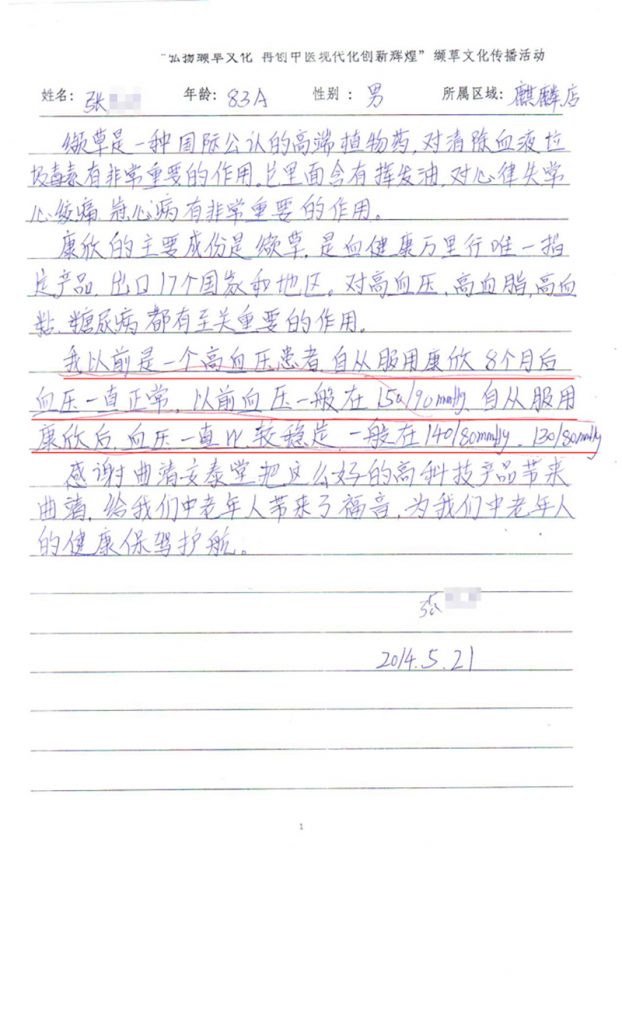 “弘扬缬草文化 再创中医现代化创新辉煌” 缬草文化传播活动
姓名：张 年龄：83A 性别：男 所属区域：麒麟店
缬草是一种国际公认的高端植物药，对清除血液垃
圾毒素有非常重要的作用。它里面含有挥发油，对心律失常
心绞痛、冠心病有非常重要的作用。
康欣的主要成份是缬草，是血健康万里行唯一指
定产品，出口17个国家和地区。对高血压，高血脂，高血
粘、糖尿病都有至关重要的作用。
我以前是一个高血压患者，自从服用康欣8个月后
血压一直正常，以前血压一般在150/90mmHg，自从服用
康欣后，血压一直比较稳定，一般在140/80mmHg、130/80mmHg
感谢曲靖安泰堂把这么好的高科技产品带来
曲靖，给我们中老年人带来了福音，为我们中老年人
的健康保驾护航。
张
2014.5.21
1